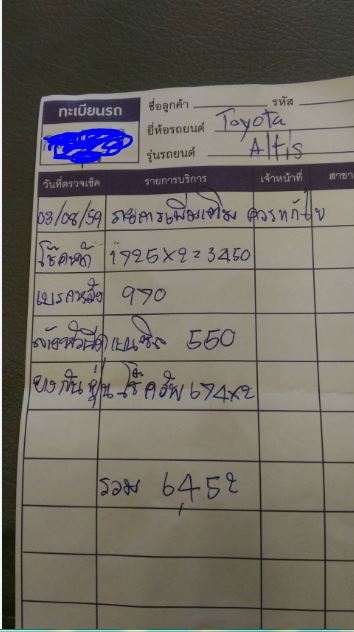 ทะเบียนรถ
ชื่อลูกค้า รหัส
ยี่ห้อรถยนต์ Toyota
รุ่นรถยนต์ Altis
วันที่ตรวจเช็ค รายการบริการ เจ้าหน้าที่ สาขา
03/08/59 รายการเพิ่มเติม ควรแก้ไข
โช๊คหน้า 1725x2=3450
เบรคหลัง 970
ล้างหัวฉีด เบนซิล 550
ยางกันฝุ่น โช๊คอัพ 674x2
รวม 6,452